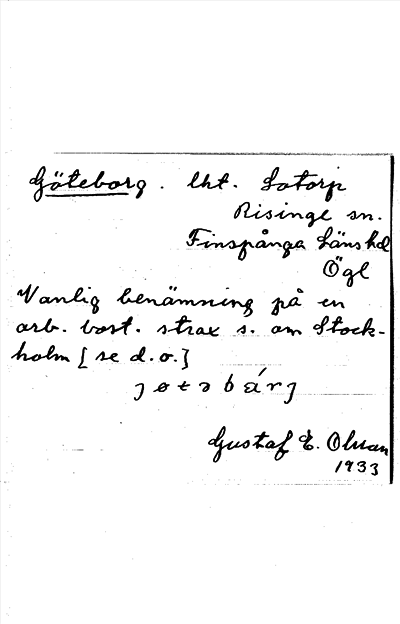 Göteborg. lht. Lotorp
Risinge sn.
Finspånga Läns hd
Ögl
Vanlig benämning på en
arb. bost. strax s. om Stock-
holm [se d.o.]
ȷøtəbárȷ
Gustaf E. Olsson
1933